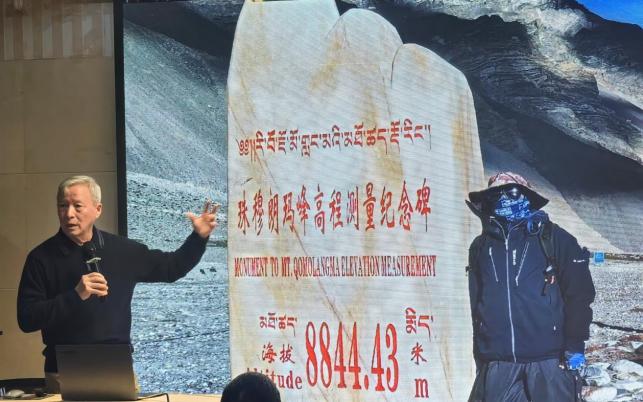 ༄༅།།རི་བོ་ཇོ་མོ་གླང་མའི་མཐོ་ཚད་རྡོ་རིང་།།
珠穆朗玛峰高程测量纪念碑
MONUMENT TO MT. QOMOLANGMA ELEVATION MEASUREMENT
མཐོ་ཚད་ 8844.43 སྨི་
海拔 米
Altitude m